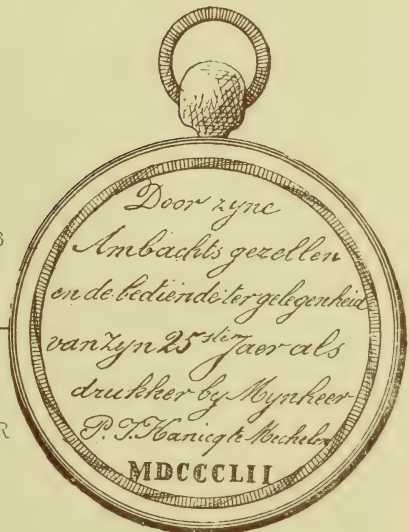 Door zyne
Ambachts gezellen
en de bediende ter gelegenheid
van zyn 25sten Jaer als
drukker by Mynheer
P. J. Hanicq te Mechelen
MDCCCLII
3
R